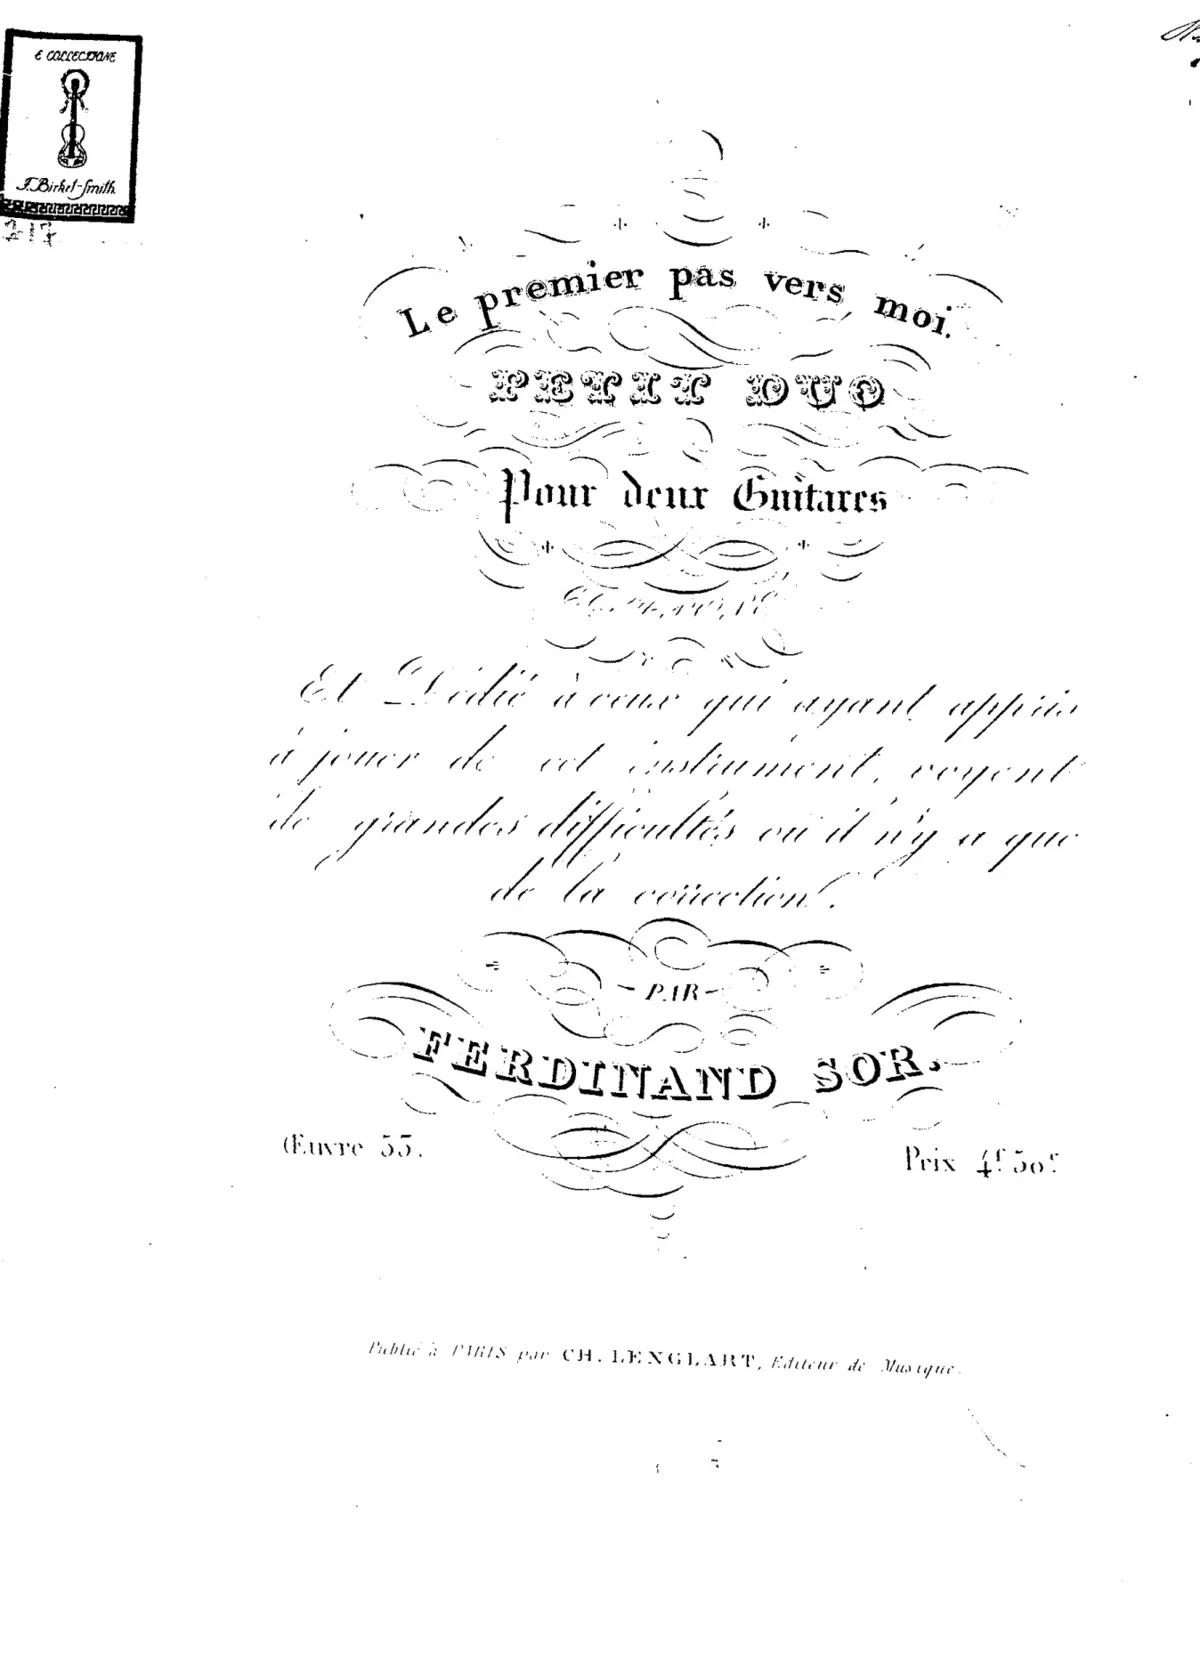 E COLLECTIONE
J. Birket-Smith
717
Le premier pas vers moi.
PETIT DUO
Pour deux Guitares
Composé
Et Dédié à ceux qui ayant appris
à jouer de cet instrument, voyent
de grandes difficultés où il n'y a que
de la correction.
PAR
FERDINAND SOR.
Œuvre 53.
Prix 4f 50c
Publié à PARIS par CH. LENGLART, Editeur de Musique.